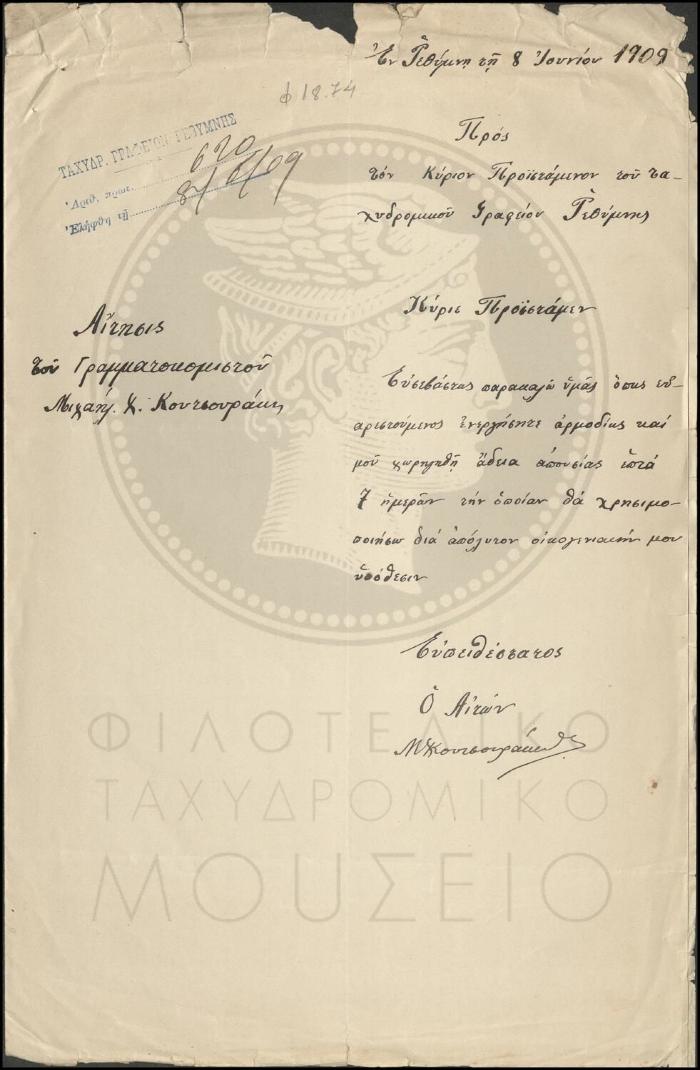 Ἐν Ῥεθύμνῃ τῇ 8 Ἰουνίου 1909
φ 18.74
ΤΑΧΥΔΡ. ΓΡΑΦΕΙΟΝ ΡΕΘΥΜΝΗΣ
Ἀριθ. πρωτ. 620
Ἐλήφθη τῇ 8/6/09
Πρός
τὸν Κύριον Προϊστάμενον τοῦ τα-
χυδρομικοῦ Γραφείου Ῥεθύμνης
Αἴτησις
τοῦ Γραμματοκομιστοῦ
Μιχαήλ. Χ. Κουτσουράκη
Κύριε Προϊστάμεν
Εὐσεβάστως παρακαλῶ ὑμᾶς ὅπως εὐ-
αριστούμενος ἐνεργήσητε ἁρμοδίως καί
μοῦ χωρηγηθῇ ἄδεια ἀπουσίας ἑπτά
7 ἡμερῶν τήν ὁποίαν θά χρησιμο-
ποιήσω διά ἀπόλυτον οἰκογενιακήν μου
ὑπόθεσιν
Εὐπειθέστατος
Ὁ Αἰτῶν
ΜΧΚουτσουράκης
ΦΙΛΟΤΕΛΙΚΟ
ΤΑΧΥΔΡΟΜΙΚΟ
ΜΟΥΣΕΙΟ